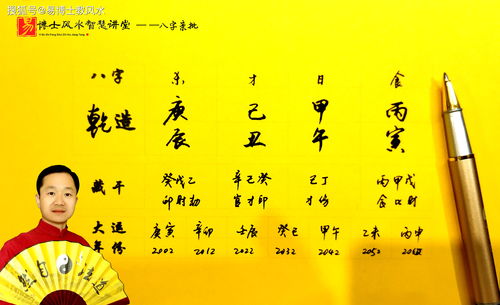 搜狐号@易博士救风水
易 博士风水智慧讲堂 ——八字亲批
Yi Bo Shi Feng Shui Zhi Hui Jiang Tang
八字 杀 才 日 食
乾造 庚 己 甲 丙
辰 丑 午 寅
藏干 癸戊乙 辛己癸 己丁 丙甲戊
印财劫 官才印 才伤 食口财
大运 庚寅 辛卯 壬辰 癸巳 甲午 乙未 丙申
年份 2002 2012 2022 2032 2042 2052
道法自然